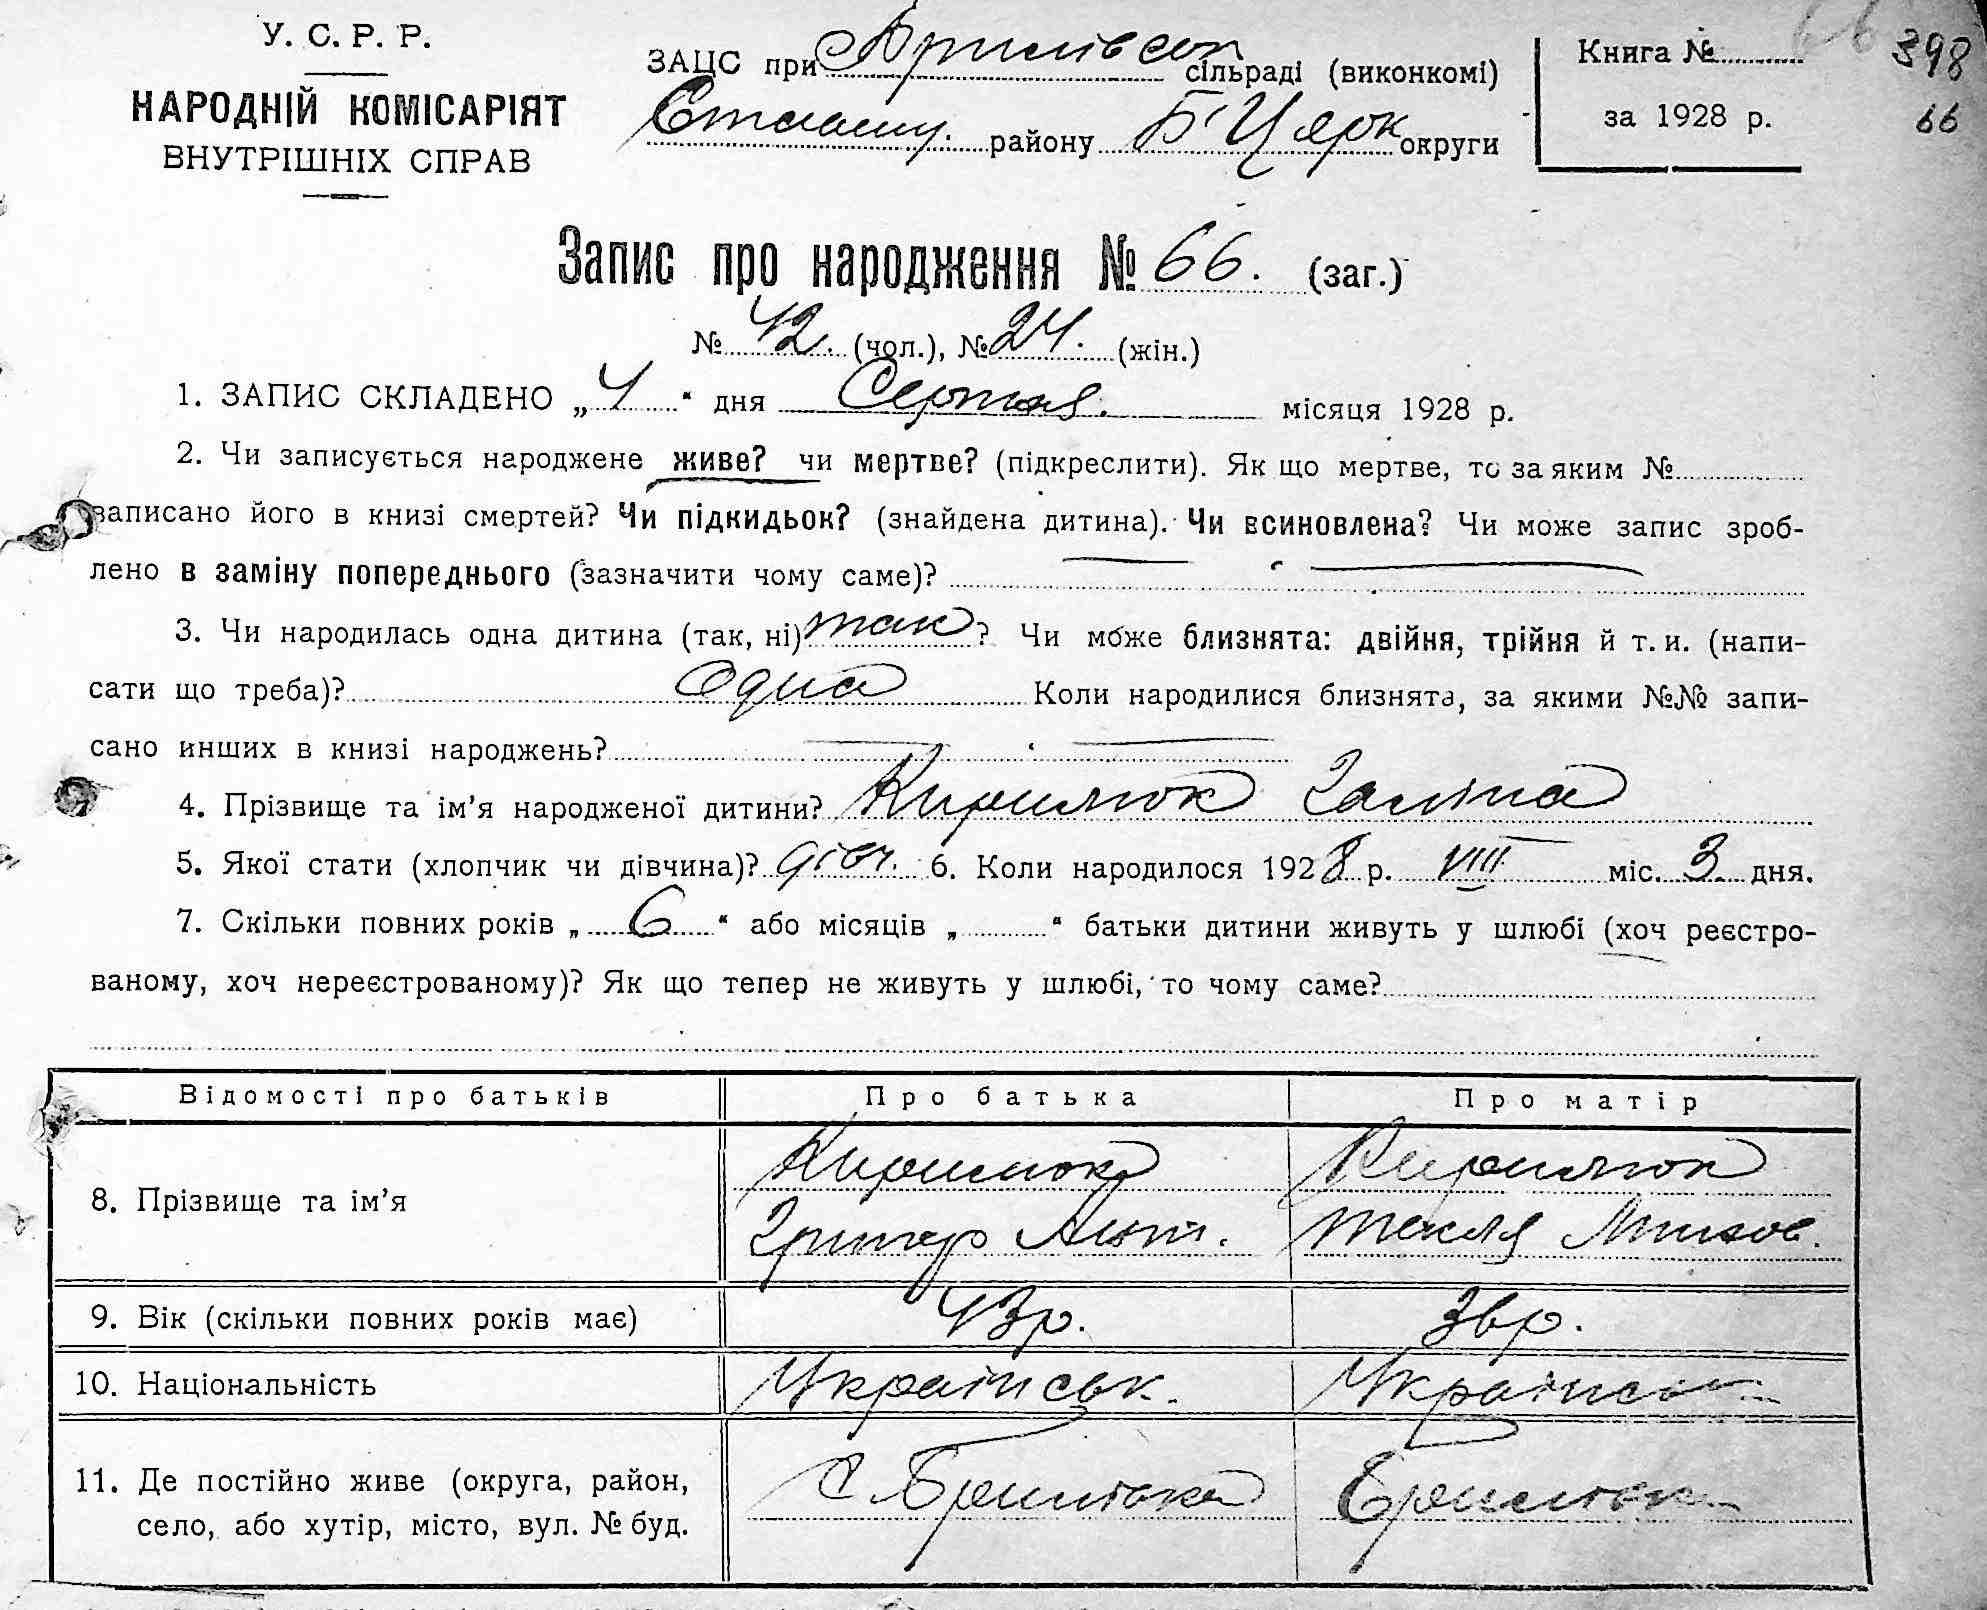 У. С. Р. Р.
НАРОДНІЙ КОМІСАРІЯТ
ВНУТРІШНІХ СПРАВ
ЗАЦС при сільраді (виконкомі)
району Б Церк округи
Книга №
за 1928 р.
398
66
Запис про народження № 66. (заг.)
№ 42. (чол.), № 24. (жін.)
1. ЗАПИС СКЛАДЕНО „ 4 “ дня Серпня. місяця 1928 р.
2. Чи записується народжене живе? чи мертве? (підкреслити). Як що мертве, то за яким №
записано його в книзі смертей? Чи підкидьок? (знайдена дитина). Чи всиновлена? Чи може запис зроб-
лено в заміну попереднього (зазначити чому саме)?
3. Чи народилась одна дитина (так, ні) так ? Чи може близнята: двійня, трійня й т. и. (напи-
сати що треба)? Одна Коли народилися близнята, за якими №№ запи-
сано инших в книзі народжень?
4. Прізвище та ім’я народженої дитини? Кирилюк Галіна
5. Якої стати (хлопчик чи дівчина)? дівч. 6. Коли народилося 1928 р. VIII міс. 3. дня.
7. Скільки повних років „ 6 “ або місяців „ “ батьки дитини живуть у шлюбі (хоч реєстро-
ваному, хоч нереєстрованому)? Як що тепер не живуть у шлюбі, то чому саме?
Відомості про батьків Про батька Про матір
8. Прізвище та ім’я
Кирилюк
Григор Ант.
Кирилюк
Текля
9. Вік (скільки повних років має) 43р. 36р.
10. Національність Українськ. Українськ
11. Де постійно живе (округа, район,
село, або хутір, місто, вул. № буд.
С. Брилівка
Брилівка